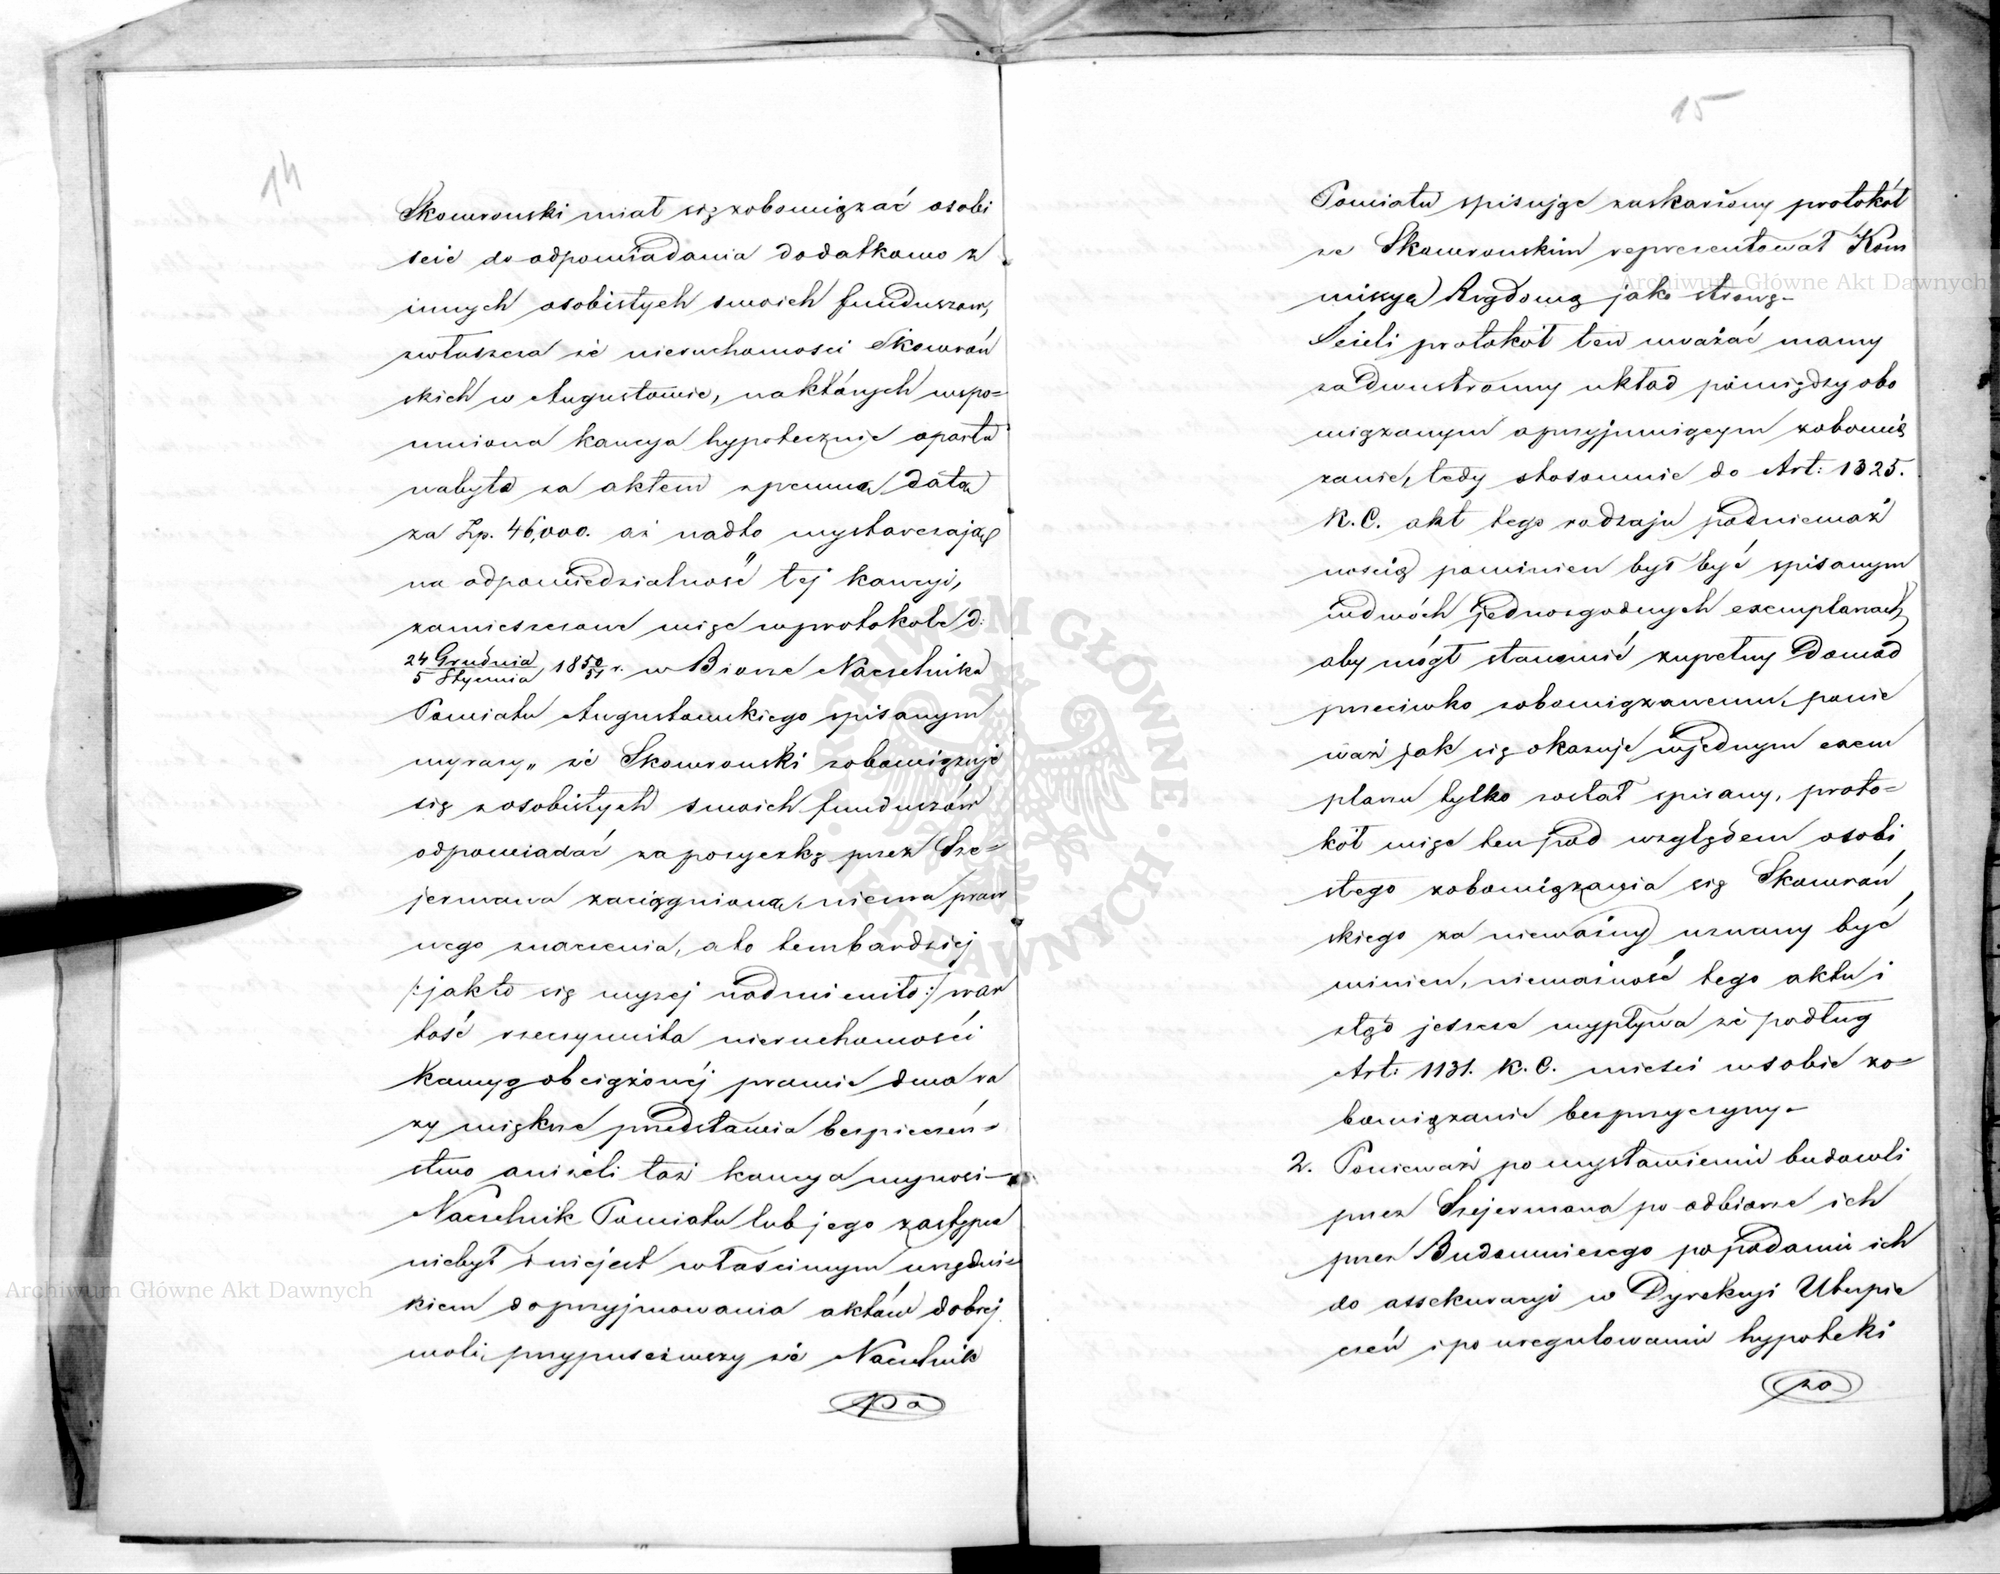 14
Skowronski miał się zobowiązać osobi
ście do odpowiadania dodatkowo z
innych osobistych swoich funduszow,
zwłaszcza że nieruchomości Skowroń
skich w Augustowie, na których wspo=
mniona kaucya hypotecznie oparta
nabyte za aktem z pewną datą
za Zp. 46,000. aż nadto wystarczają
na odpowiedzialność tej kaucyi,
zamieszczone więc w protokole d:
24 Grudnia / 5 Stycznia 1850/51 r. w Biorze Naczelnika
Powiatu Augustowskiego spisanym
wyrazy „ że Skowronski zobowiązuje
się z osobistych swoich funduszów
odpowiadać za pożyczkę przez Sze=
jermana zaciągnioną, niema praw
nego znaczenia, a to tembardziej
/:jak to się wyżej nadmieniło:/ war
tość rzeczywista nieruchomości
kaucyą obciążonéj prawie dwa ra
zy większe przedstawia bezpieczeń=
stwo aniżeli taż kaucya wynosi—
Naczelnik Powiatu lub jego zastępca
niebył i niejest właściwym urzędni
kiem do przyjmowania aktów dobrej
woli, przypuściwszy że Naczelnik
Po
15
Powiatu spisując zaskarżony protokół
ze Skowronskim reprezentował Kom
missyą Rządową jako stronę—
Jeżeli protokół ten uważać mamy
za Dwustronny układ pomiędzy obo
wiązanym a przyjmującym zobowią
zanie, tedy stosownie do Art: 1325.
K.C. akt tego rodzaju pod nieważ
nością powinien był być spisanym
w dwóch jednozgodnych exemplarzach
aby mógł stanowić zupełny Dowód
przeciwko zobowiązanemu, ponie
waż jak się okazuje w jednym exem
plarzu tylko został spisany, proto=
kół więc ten pod względem osobi
stego zobowiązania się Skowroń
skiego za nieważny uznany być
winien, nieważność tego aktu i
ztąd jeszcze wypływa że podług
Art: 1131. K.C. mieści w sobie zo=
bowiązanie bezprzyczyny—
2. Ponieważ po wystawieniu budowli
przez Szejermana po odbiorze ich
przez Budowniczego po podaniu ich
do assekuracyi w Dyrekcyi Ubezpie
czeń i po uregulowaniu hypoteki
za
Archiwum Główne Akt Dawnych
Archiwum Główne Akt Dawnych
ARCHIWUM GŁÓWNE AKT DAWNYCH